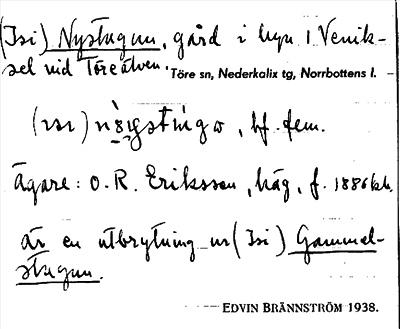 (Isi) Nystugun, gård i byn i Venik-
sel vid Töreälven. Töre sn, Nederkalix tg, Norrbottens l.
bf. fem.
ägare: O. R. Eriksson, häg, f. 1886
är en utbrytning ur (Isi) Gammel-
stugun.
EDVIN BRÄNNSTRÖM 1938.